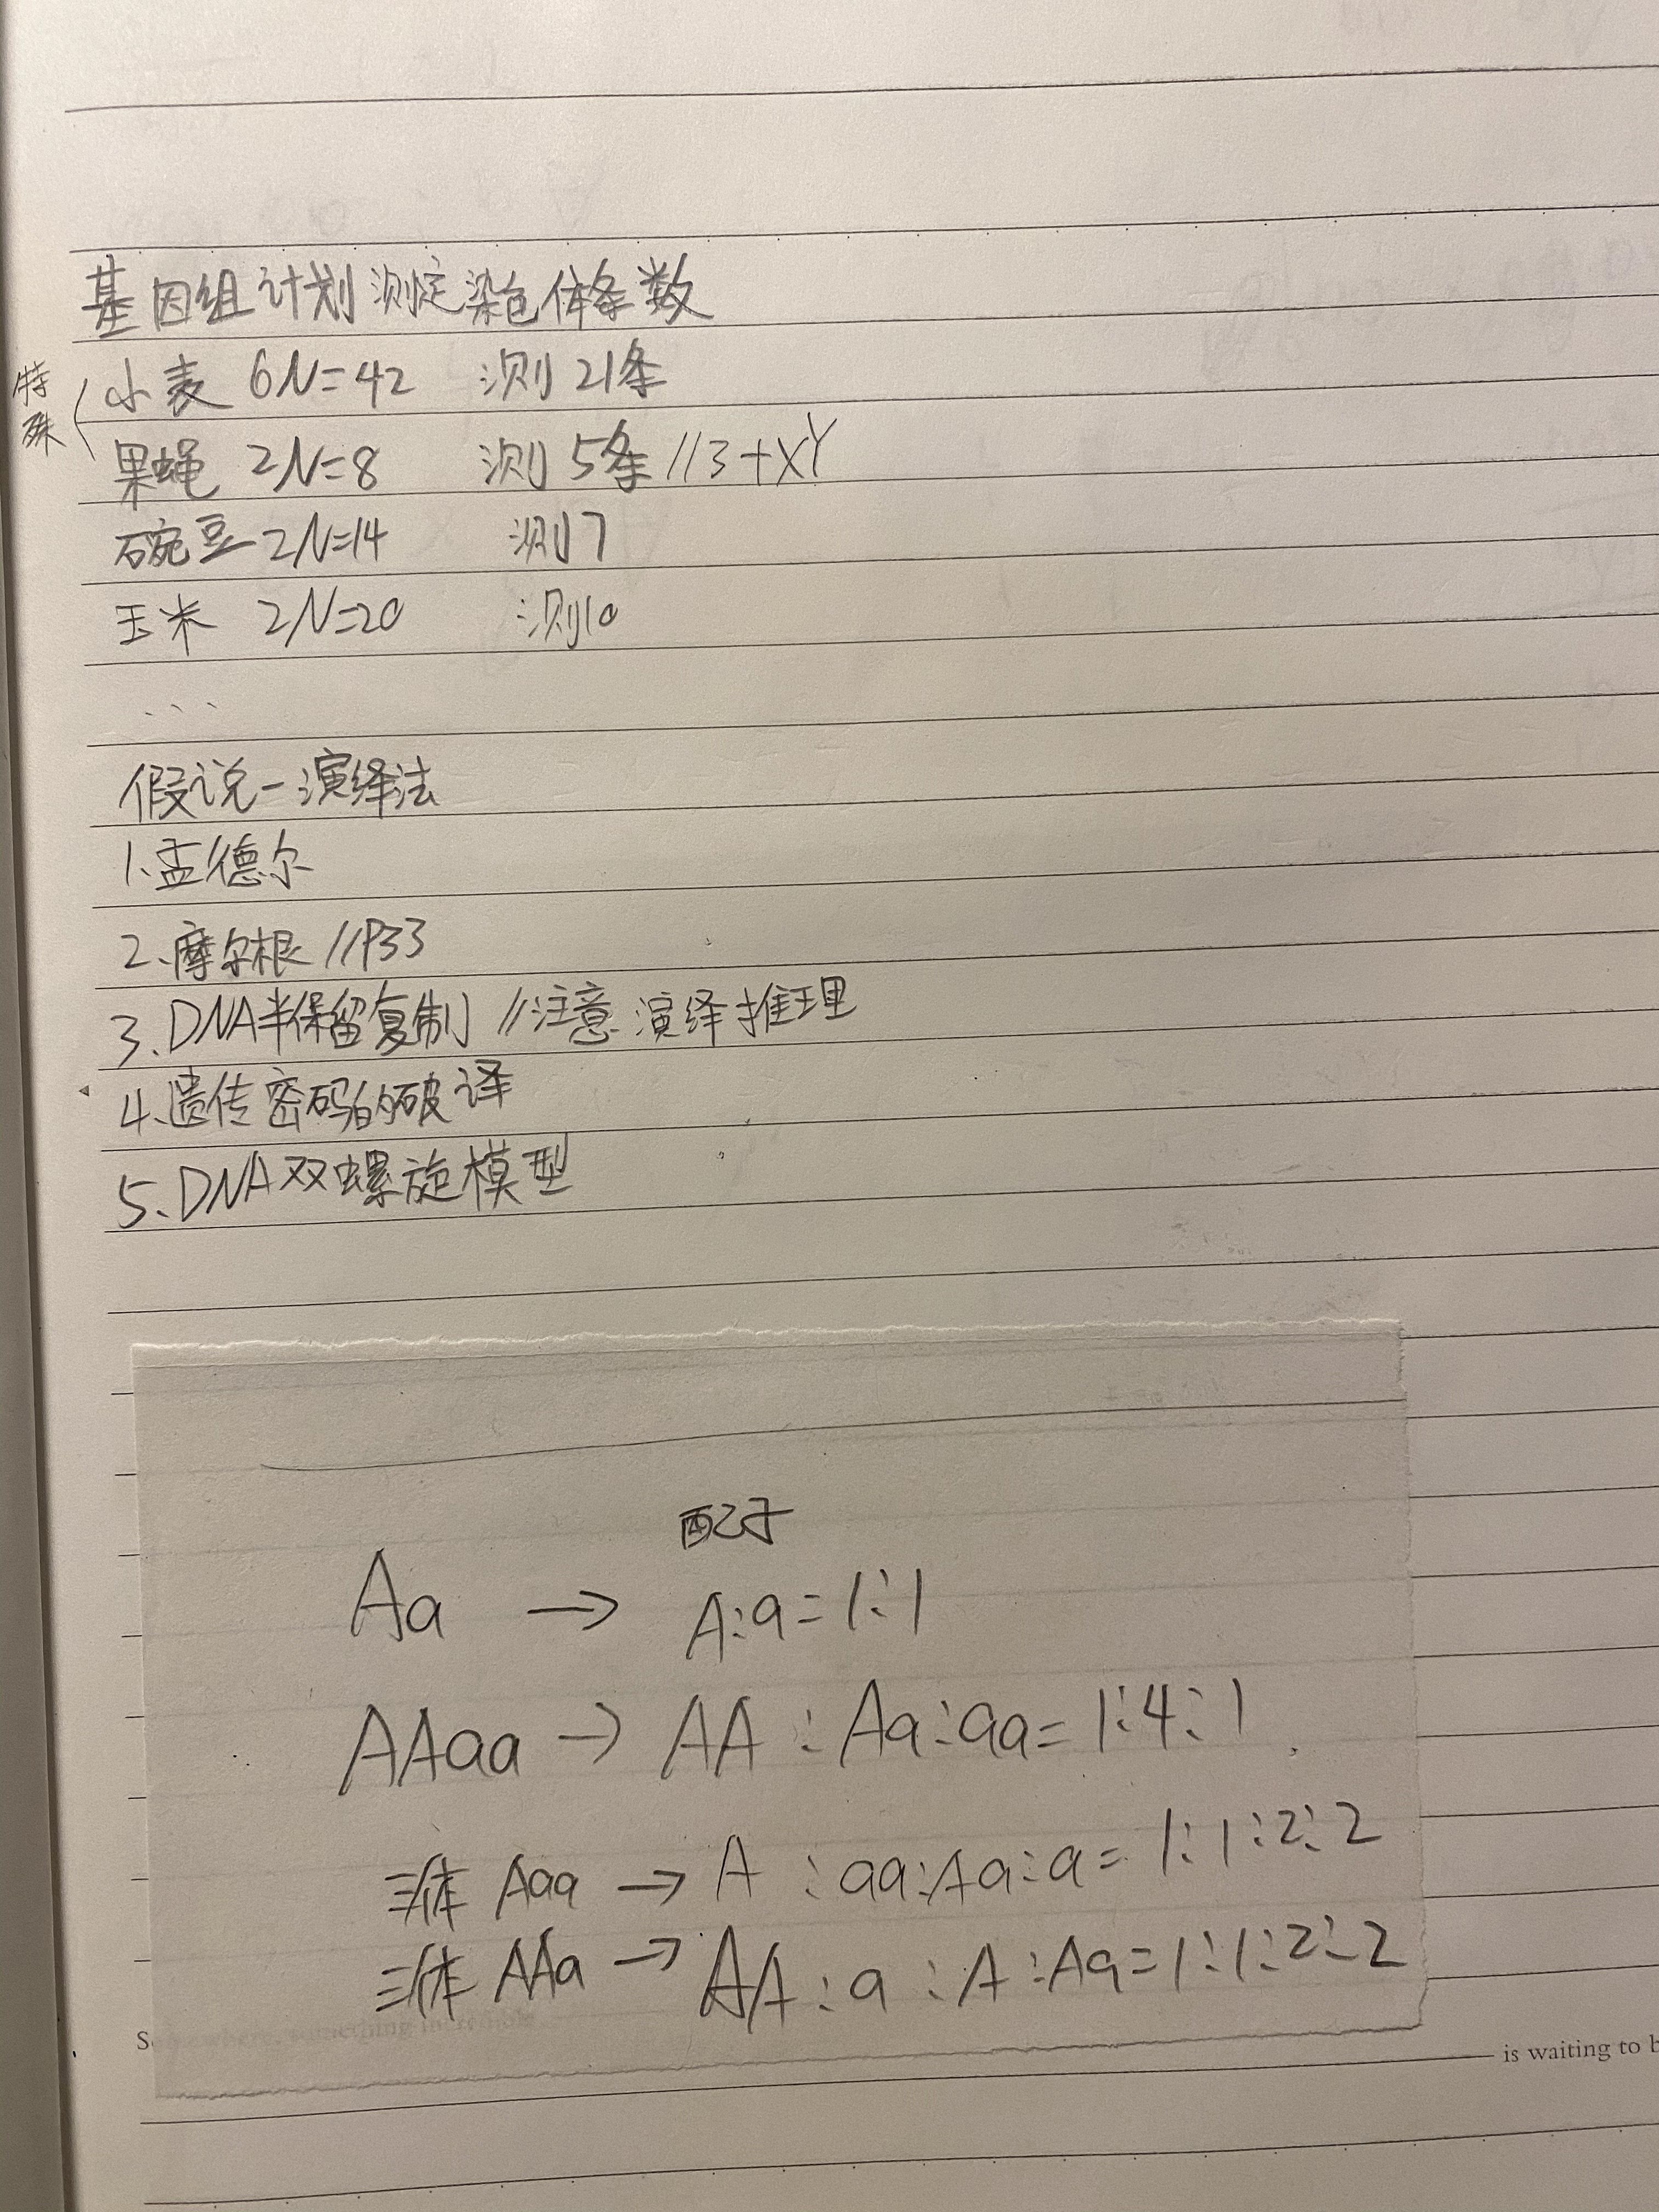 基因组计划测定染色体条数
特殊
小麦 6N=42 测21条
果蝇 2N=8 测5条 //3+XY
豌豆-2N=14 测7
玉米 2N=20 测10
假说-演绎法
1.孟德尔
2.摩尔根 //P33
3.DNA半保留复制 //注意:演绎推理
4.遗传密码的破译
5.DNA双螺旋模型
配子
Aa → A:a=1:1
AAaa → AA:Aa:aa=1:4:1
三体 Aaa → A:aa:Aa:a=1:1:2:2
三体 AAa → AA:a:A:Aa=1:1:2:2
is waiting to